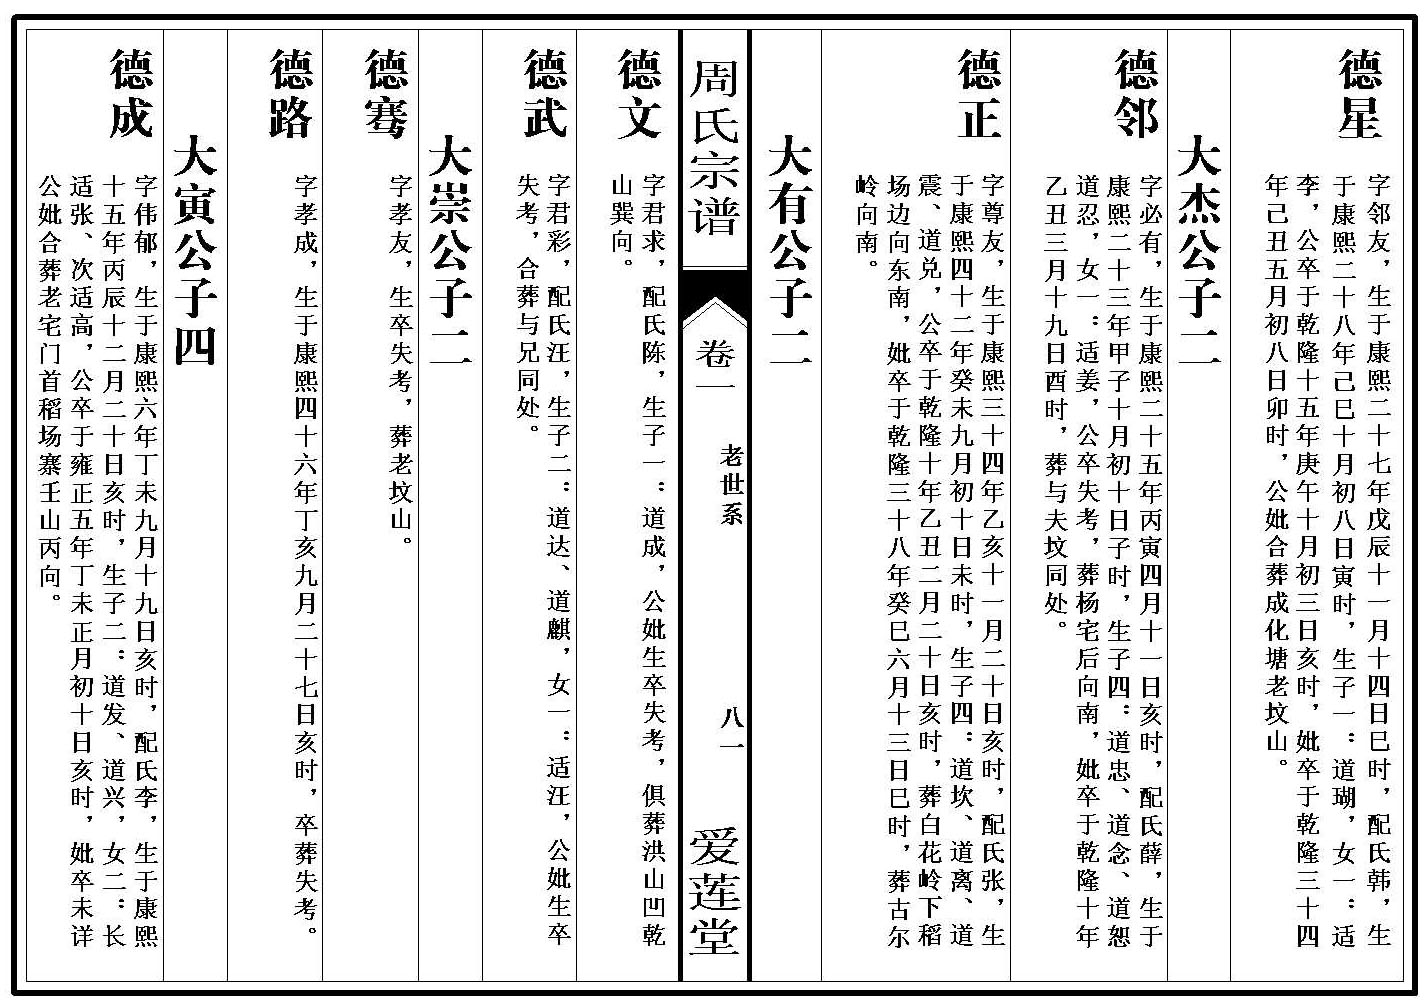 德星
字邻友，生于康熙二十七年戊辰十一月十四日巳时，配氏韩，生
于康熙二十八年己巳十月初八日寅时，生子一：道瑚，女一：适
李，公卒于乾隆十五年庚午十月初三日亥时，妣卒于乾隆三十四
年己丑五月初八日卯时，公妣合葬成化塘老坟山。
大杰公子二
德邻
字必有，生于康熙二十五年丙寅四月十一日亥时，配氏薛，生于
康熙二十三年甲子十月初十日子时，生子四：道忠、道念、道恕
道忍，女一：适姜，公卒失考，葬杨宅后向南，妣卒于乾隆十年
乙丑三月十九日酉时，葬与夫坟同处。
德正
字尊友，生于康熙三十四年乙亥十一月二十日亥时，配氏张，生
于康熙四十二年癸未九月初十日未时，生子四：道坎、道离、道
震、道兑，公卒于乾隆十年乙丑二月二十日亥时，葬白花岭下稻
场边向东南，妣卒于乾隆三十八年癸巳六月十三日巳时，葬古尔
岭向南。
大有公子二
周氏宗谱
卷一
老世系
八一
爱莲堂
德文
字君求，配氏陈，生子一：道成，公妣生卒失考，俱葬洪山凹乾
山巽向。
德武
字君彩，配氏汪，生子二：道达、道麒，女一：适汪，公妣生卒
失考，合葬与兄同处。
大崇公子二
德骞
字孝友，生卒失考，葬老坟山。
德路
字孝成，生于康熙四十六年丁亥九月二十七日亥时，卒葬失考。
大寅公子四
德成
字伟郁，生于康熙六年丁未九月十九日亥时，配氏李，生于康熙
十五年丙辰十二月二十日亥时，生子二：道发、道兴，女二：长
适张、次适高，公卒于雍正五年丁未正月初十日亥时，妣卒未详
公妣合葬老宅门首稻场寨壬山丙向。